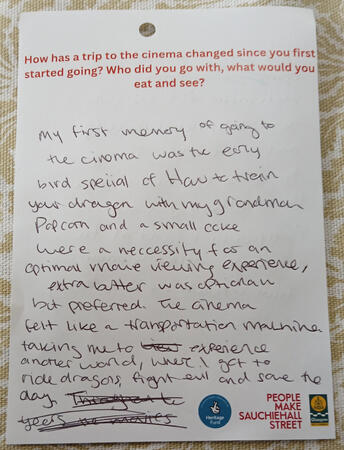 How has a trip to the cinema changed since you first
started going? Who did you go with, what would you
eat and see?
My first memory of going to
the cinema was the early
bird speiial of How to trein
your dragon with my grandman
Popcorn and a small coke
were a neccessity for an
optimal movie viewing experience,
extra butter was optional
but preferred. The cinema
felt like a transportation machine
taking me to experience
another world, where I got to
ride dragons, fight evil and save the
day.
years movies
Heritage
Fund
PEOPLE
MAKE
SAUCHIEHALL
STREET